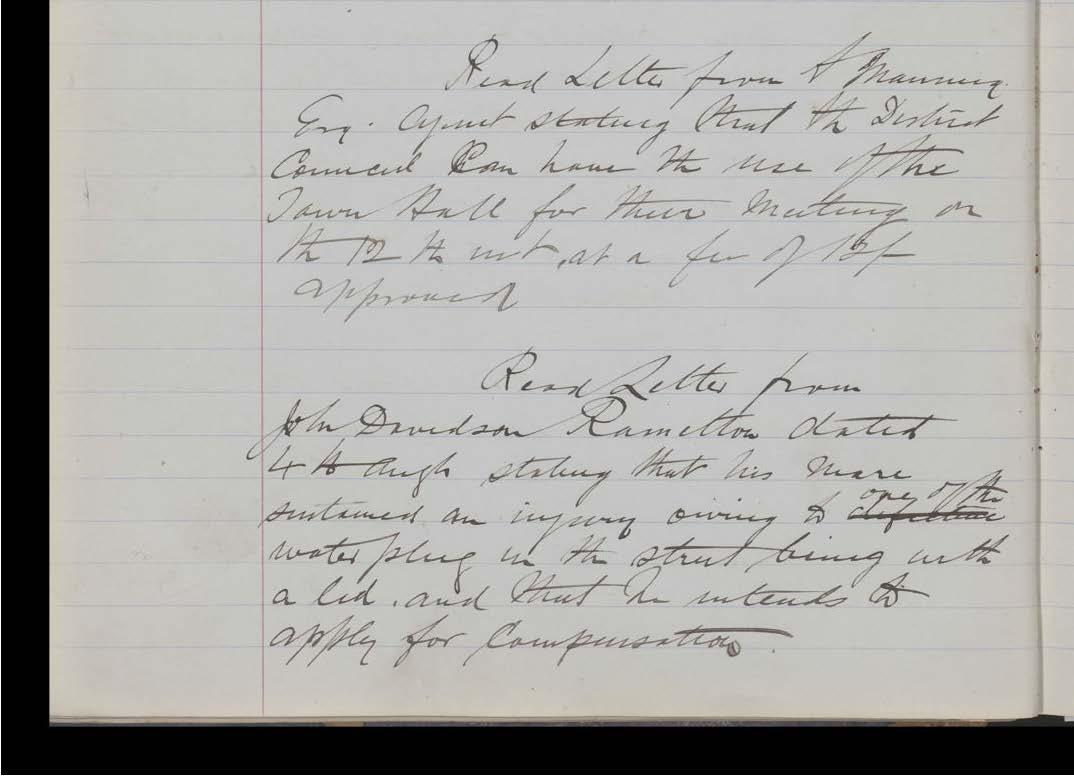 Read Letter from A Manning
Esq. Agent stating that the District
Council Can have the use of the
Town Hall for their Meeting on
the 12th inst, at a fee of 12/-
approved
Read Letter from
John Davidson Ramelton dated
4th Augt stating that his Mare
sustained an injury owing to defective one of the
water plug in the street being with
a lid. and that he intends to
apply for Compensation.